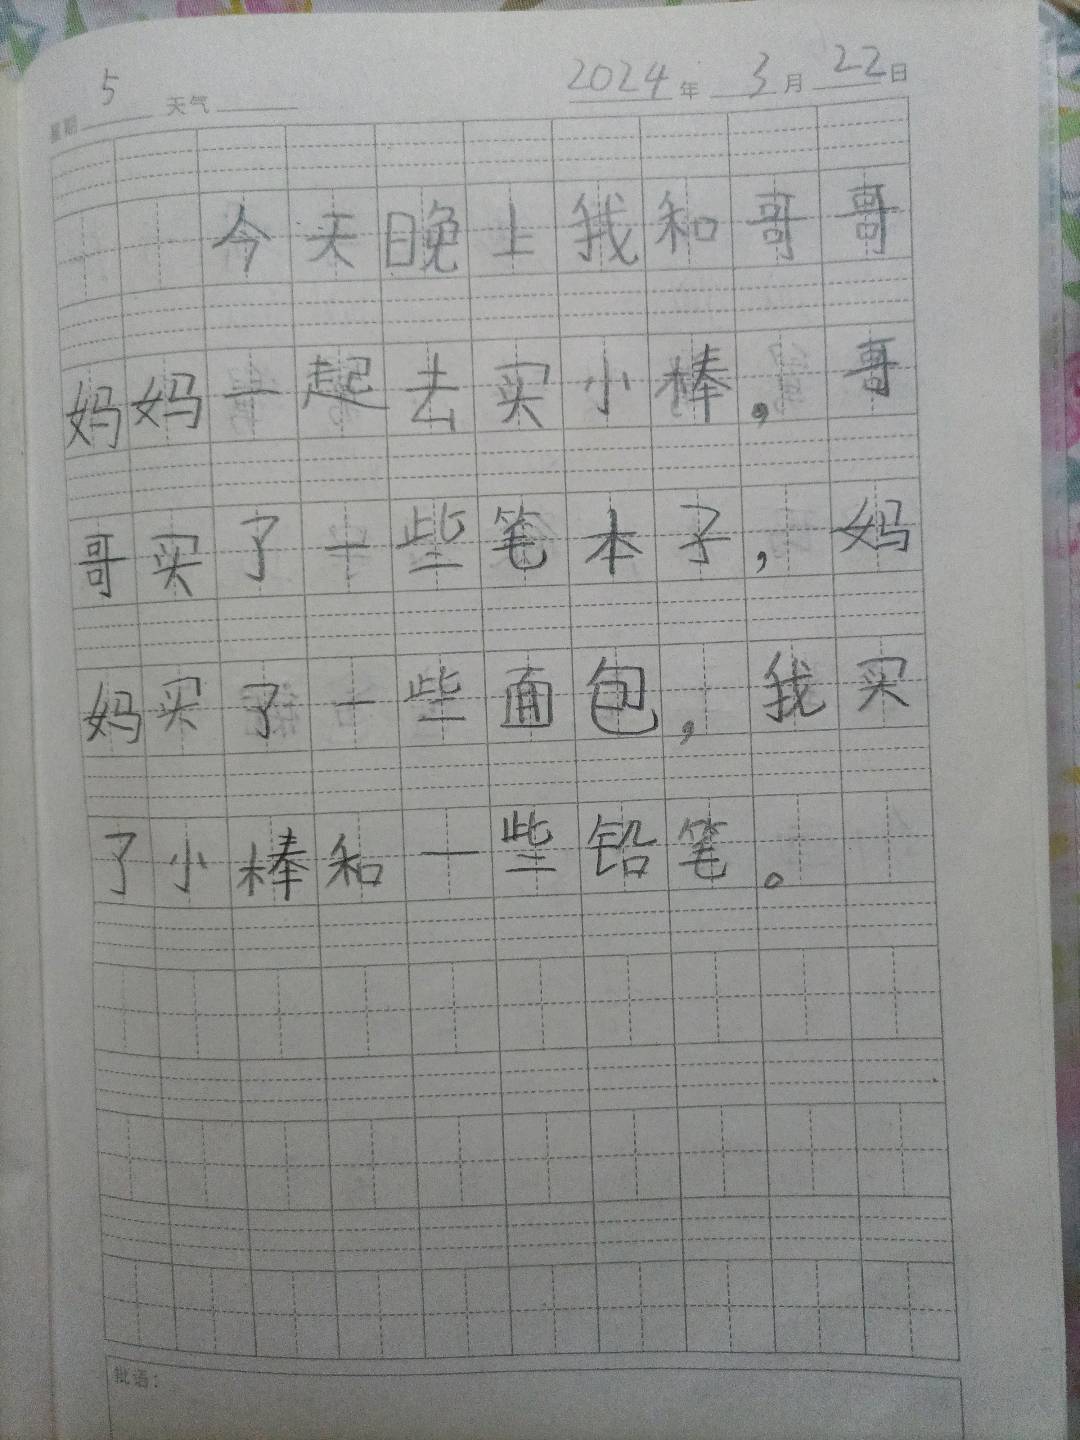 星期 5 天气 2024年 3月 22日
今天晚上我和哥哥
妈妈一起去买小棒，哥
哥买了一些笔本子，妈
妈买了一些面包，我买
了小棒和一些铅笔。
批语：